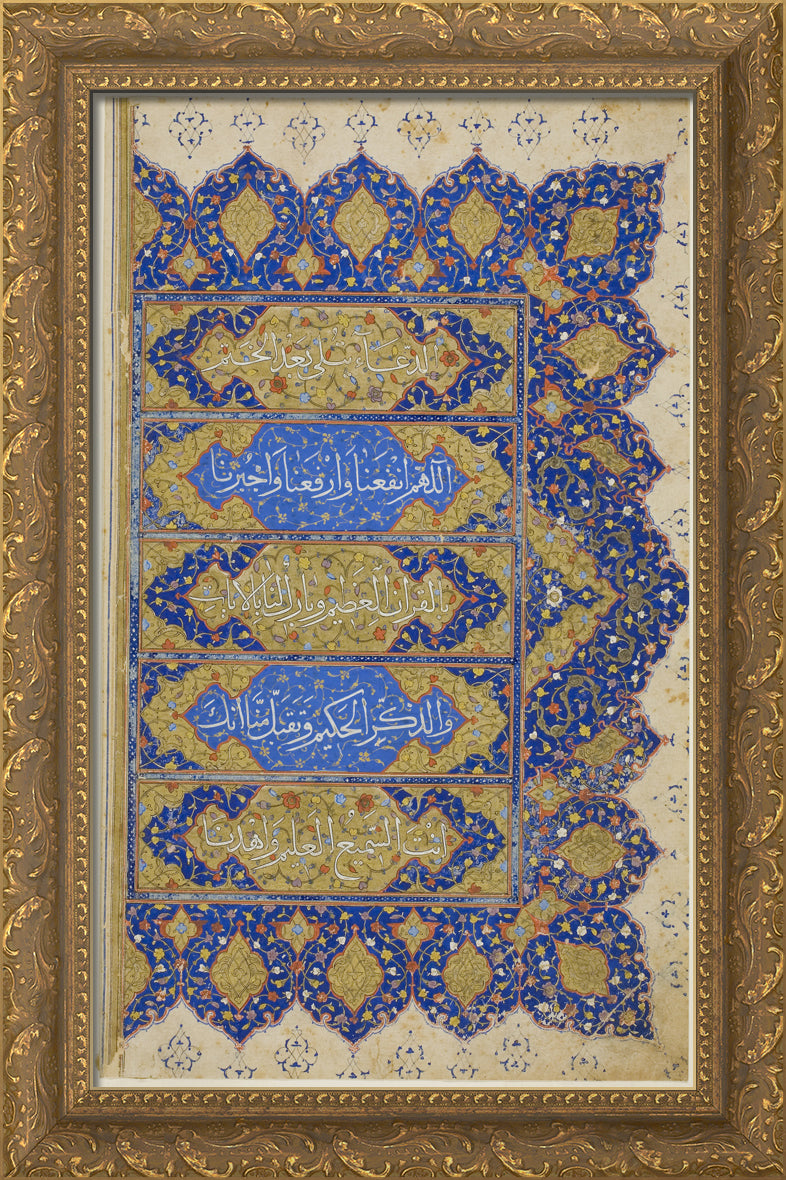 الدعاء تتلى بعد الختم
اللهم انفعنا وارفعنا واجبرنا
بالقران العظيم وبارك لنا بالايات
والذكر الحكيم وتقبل منا انك
انت السميع العليم واهدنا